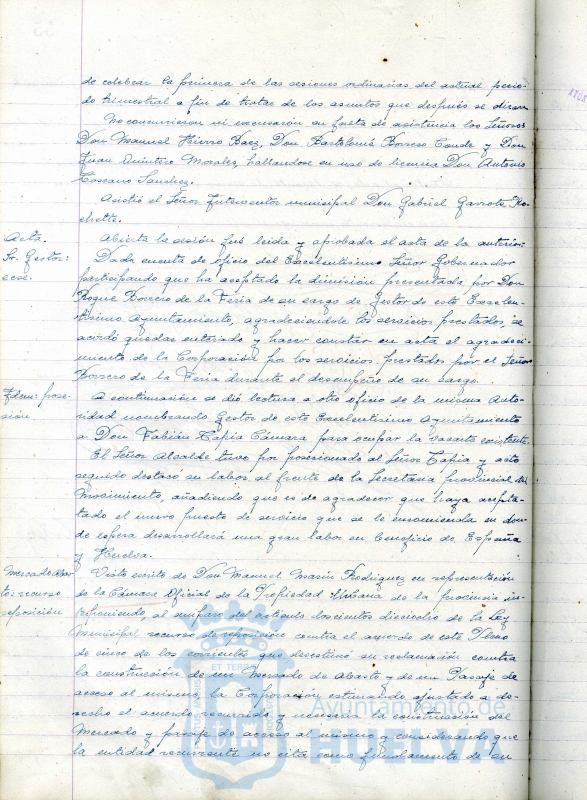 de celebrar la primera de las sesiones ordinarias del actual perio-
do trimestral a fin de tratar de los asuntos que después se diran.
No concurrieron ni excusaron su falta de asistencia los Señores
Don Manuel Hierro Baez, Don Bartolomé Borrero Conde y Don
Juan Quintero Morales, hallandose en uso de licencia Don Antonio
Toscano Sanchez.
Asistió el Señor Interventor municipal Don Gabriel Garrote Ro-
chette.
Acta.
Abierta la sesión fué leida y aprobada el acta de la anterior.
Sr. Gestor:
cese.
Dada cuenta de oficio del Excelentísimo Señor Gobernador
participando que ha aceptado la dimisión presentada por Don
Roque Borrero de la Feria de su cargo de Gestor de este Excelen-
tísimo Ayuntamiento, agradeciendole los servicios prestados, se
acordó quedar enterado y hacer constar en acta el agradeci-
miento de la Corporación por los servicios prestados por el Señor
Borrero de la Feria durante el desempeño de su cargo.
Idem: pose-
sión
A continuación se dió lectura a otro oficio de la misma Auto-
ridad nombrando Gestor de este Excelentísimo Ayuntamiento
a Don Fabián Tapia Cámara para ocupar la vacante existente.
El Señor Alcalde tuvo por posesionado al Señor Tapia y acto
seguido destacó su labor al frente de la Secretaria provincial del
Movimiento, añadiendo que es de agradecer que haya acep-
tado el nuevo puesto de servicio que se le encomienda en don-
de espera desarrollará una gran labor en beneficio de España
y Huelva.
Mercado abas-
tos: recurso
reposición
Visto escrito de Don Manuel Marin Rodriguez en representación
de la Cámara Oficial de la Propiedad Urbana de la provincia in-
terponiendo, al amparo del articulo doscientos dieciocho de la Ley
Municipal recurso de reposición contra el acuerdo de este Pleno
de cinco de los corrientes que desestimó su reclamación contra
la construcción de un Mercado de Abasto y de un Pasaje de
acceso al mismo, la Corporación estimando ajustado a de-
recho el acuerdo recurrido y necesaria la construcción del
Mercado y pasaje de acceso al mismo y considerando que
la entidad recurrente no cita como fundamento de su
Ayuntamiento de
HUELVA
ET TERRA